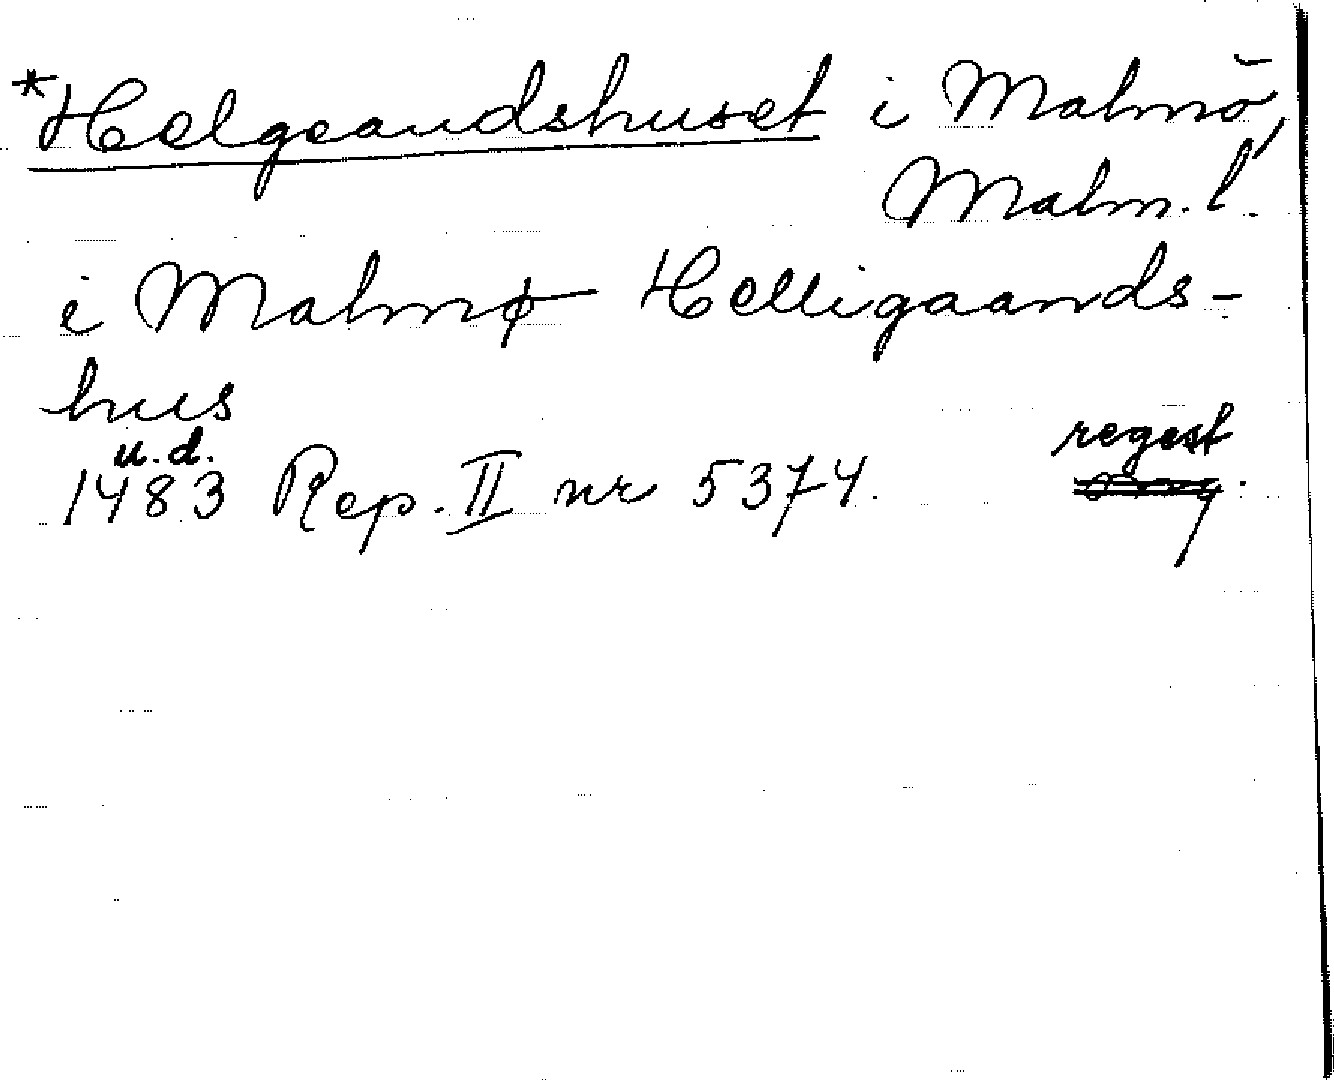 *Helgeandshuset i Malmö,
Malm. l.
i Malmø Helligaands-
hus
u.d. regest
1483 Rep. II nr 5374.